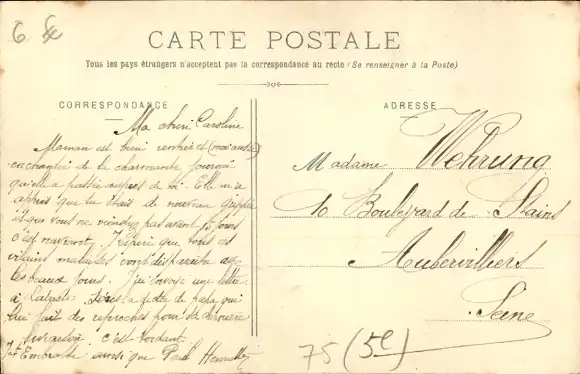 6 f
CARTE POSTALE
Tous les pays étrangers n'acceptent pas la correspondance au recto (Se renseigner à la Poste)
CORRESPONDANCE
Ma chère Caroline
Maman est bien rentrée et (moi aussi)
enchantée de la charmante journée
qu'elle a passée auprès de toi. Elle m'a
appris que tu étais de nouveau grippée
vous ne viendrez pas avant 15 jours
c'est navrant. J'espère que tous ces
vilains malaises vont disparaître avec
les beaux jours. J'ai envoyé une lettre
à de papa qui
lui fait des reproches pour sa dernière
c'est tordant.
Embrasse ainsi que Paul Henriette
ADRESSE
Madame Wehrung
10 Boulevard de Stains
Aubervilliers
Seine
75 (5e)